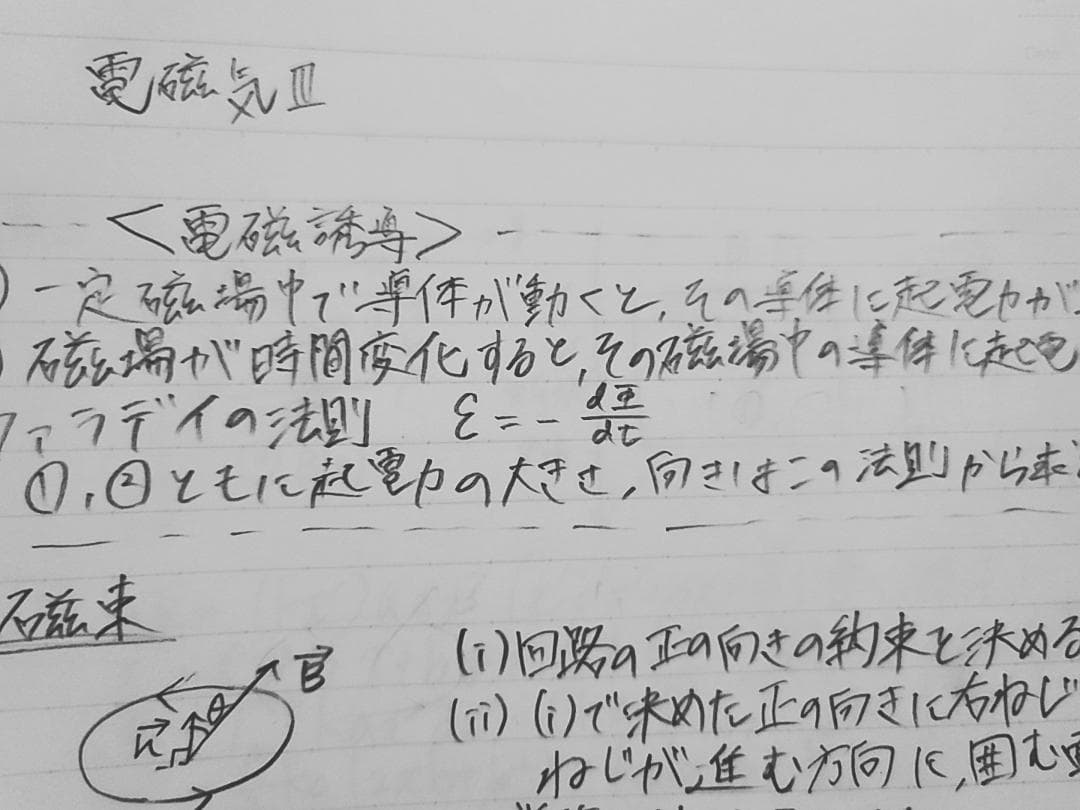 電磁気Ⅲ
<電磁誘導>
) 一定磁場中で導体が動くと,その導体に起電力が
) 磁場が時間変化すると,その磁場中の導体に起電
ファラデイの法則 ε = - dΦ/dt
①,②ともに起電力の大きさ,向きはこの法則から求
磁束
(i)回路の正の向きの約束を決める
(ii) (i)で決めた正の向きに右ねじ
ねじが進む方向に,囲む
B→
n→ θ